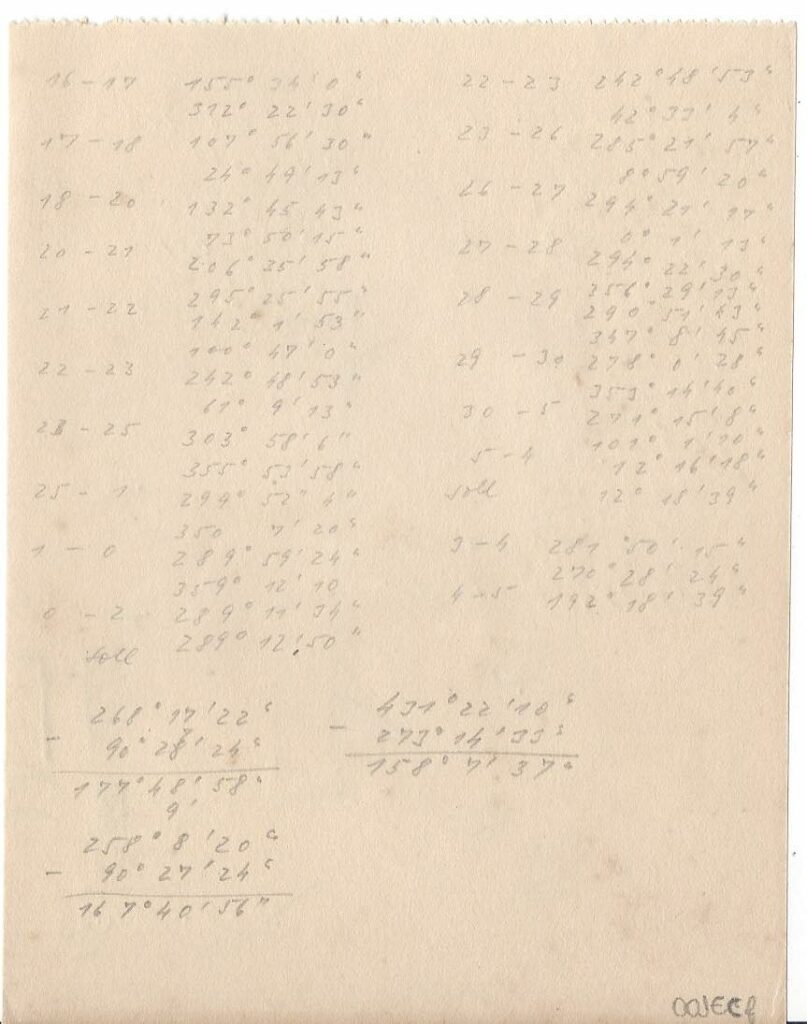 16 - 17 155° 34' 0"
312° 22' 30"
17 - 18 107° 56' 30"
24° 49' 13"
18 - 20 132° 45' 43"
73° 50' 15"
20 - 21 206° 35' 58"
295° 25' 55"
21 - 22 142° 1' 53"
100° 47' 0"
22 - 23 242° 48' 53"
61° 9' 13"
23 - 25 303° 58' 6"
355° 53' 58"
25 - 1 299° 52" 4"
350 7' 20"
1 - 0 289° 59' 24"
359° 12' 10
0 - 2 289° 11' 34"
soll 289° 12' 50"
22 - 23 242° 48' 53"
42° 33' 4"
23 - 26 285° 21' 57"
8° 59' 20"
26 - 27 294° 21' 17"
0° 1' 13"
27 - 28 294° 22' 30"
356° 29' 13"
28 - 29 290° 51' 43"
347° 8' 45"
29 - 30 278° 0' 28"
353° 14' 40"
30 - 5 271° 15' 8"
101° 1' 10"
5 - 4 12° 16' 18"
soll 12° 18' 39"
3 - 4 281° 50' 15"
270° 28' 24"
4 - 5 192° 18' 39"
268° 17' 22"
- 90° 28' 24"
177° 48' 58"
9'
258° 8' 20"
- 90° 27' 24"
167° 40' 56"
431° 22' 10"
- 273° 14' 33"
158° 7' 37"